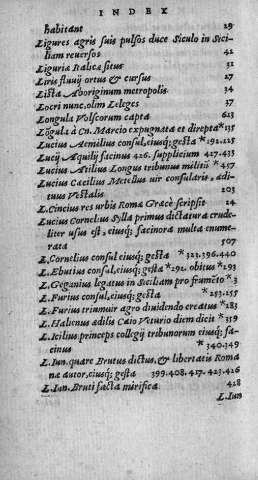 INDEX
habitant 29
Ligures agris suis pulsos duce Siculo in Sici-
liam reuersos 41
Liguria Italica situs 31
Liris fluuij ortus & cursus 27
Lista Aboriginum metropolis 34
Locri nunc, olim Leleges 37
Longula Volscorum capta 613
Lōgula à Cn. Marcio expugnata et direpta *135
Lucius Aemilius consul, eiusq; gesta *192.225
Lucij Aquilij facinus 426. supplicium 427.435
Lucius Atilius Longus tribunus militū *457
Lucius Caecilius Metellus uir consularis, ædi-
tuus Vestalis 203
L. Cincius res urbis Romæ Græcè scripsit 24
Lucius Cornelius Sylla primus dictatura crude-
liter usus est, eiusq; facinora multa enume-
rata 507
L. Cornelius consul eiusq; gesta *323.396.440
L. Ebutius consul, eiusq; gesta *292. obitus *293
L. Geganius legatus in Siciliam pro frumēto *3
L. Furius consul, eiusq; gesta *253.255
L. Furius triumuir agro diuidendo creatus *283
L. Halienus ædilis Caio Veturio diem dicit *359
L. Icilius princeps collegij tribunorum eiusq; fa-
cinus *340.349
L. Iun. quare Brutus dictus, & libertatis Roma
næ autor, eiusq; gesta 399.408.417.423.426
L. Iun. Bruti facta mirifica 428
L. Iun